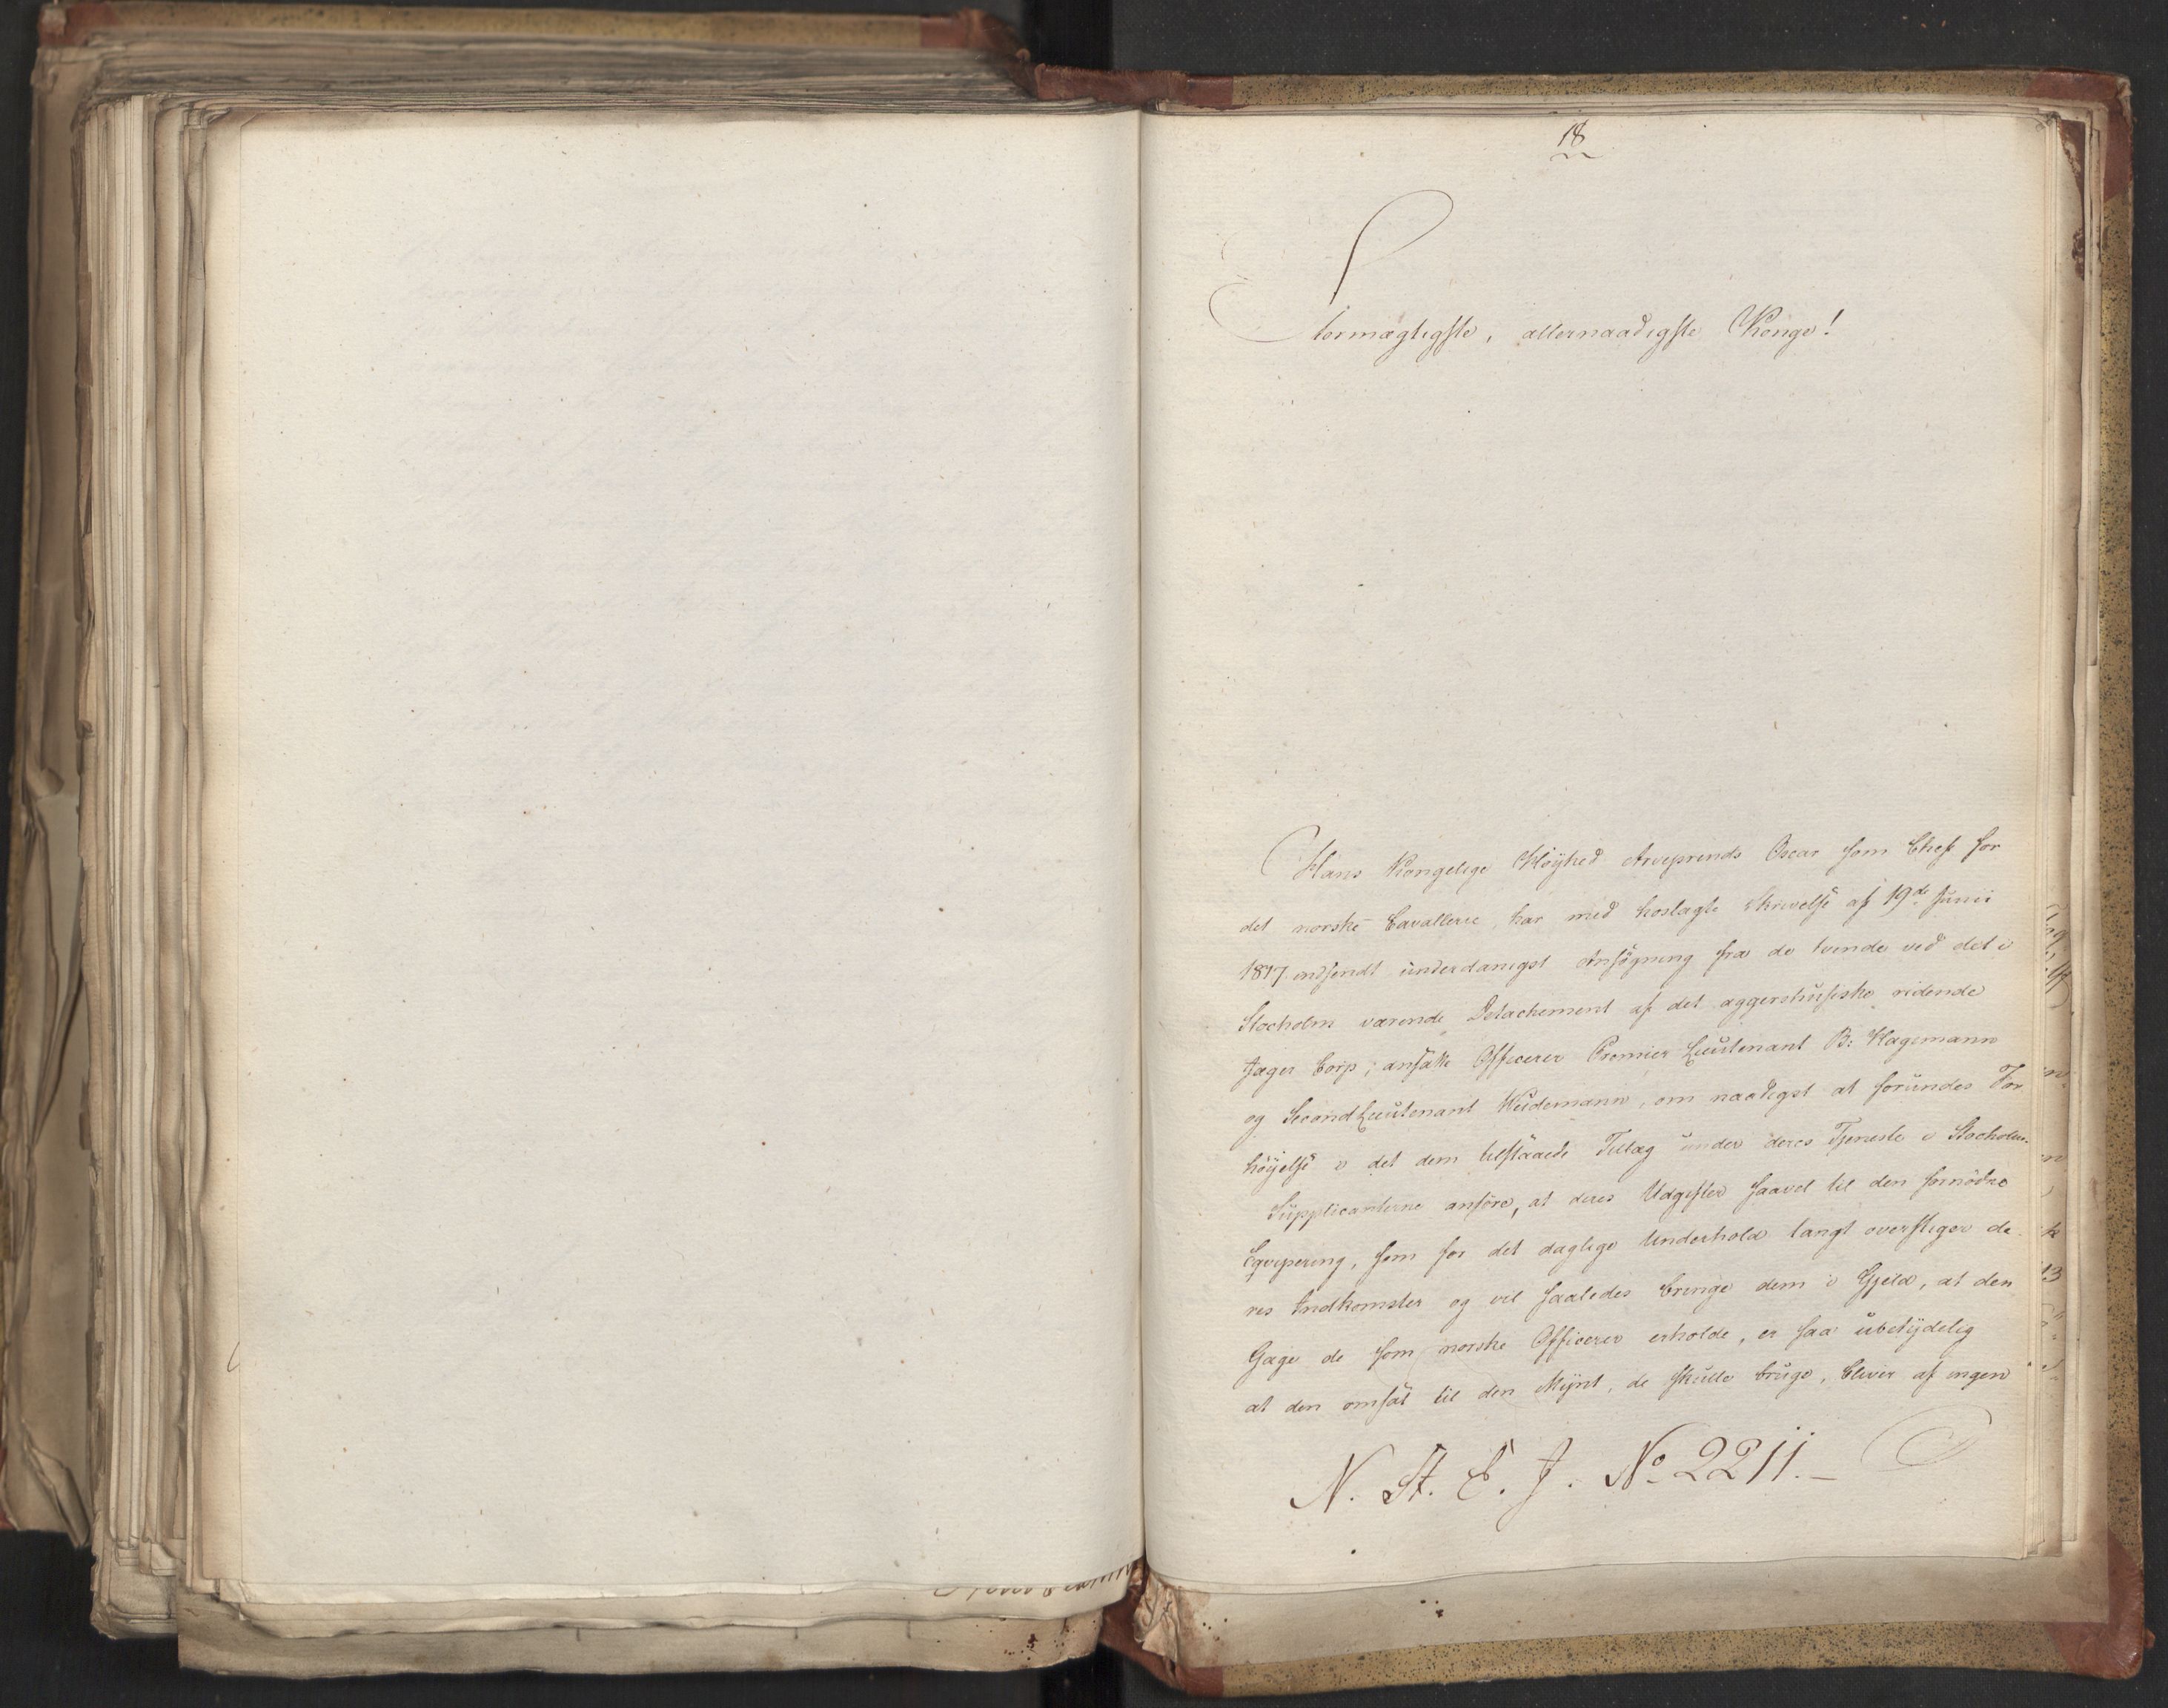 18
Stormægtigste, allernaadigste Konge!
Hans Kongelige Höÿhed Arveprinds Oscar som Chef for
det norske Cavallerie, har med hoslagte Skrivelse af 19de Junii
1817. indsendt underdanigst Ansögning fra de tvende ved det i
Stocholm værende Detachement af det aggershusiske ridende
Jæger Corps, ansatte Officerer Premier Lieutenant B: Hagemann
og SecondLieutenant Weidemann, om naadigst at forundes For
höÿelse i det dem tilstaaede Tillæg under deres Tjeneste i Stocholm.
Supplicanterne anföre, at deres Udgifter saavel til den fornödne
Eqvipering, som for det daglige Underhold langt overstiger de
res Indkomster og vil saaledes bringe dem i Gjeld, at den
Gage de som norske Officerer erholde, er saa ubetÿdelig
at den omsat til den Mÿnt, de skulle bruge, bliver af ingen
N. St. E. J. No 2211.-